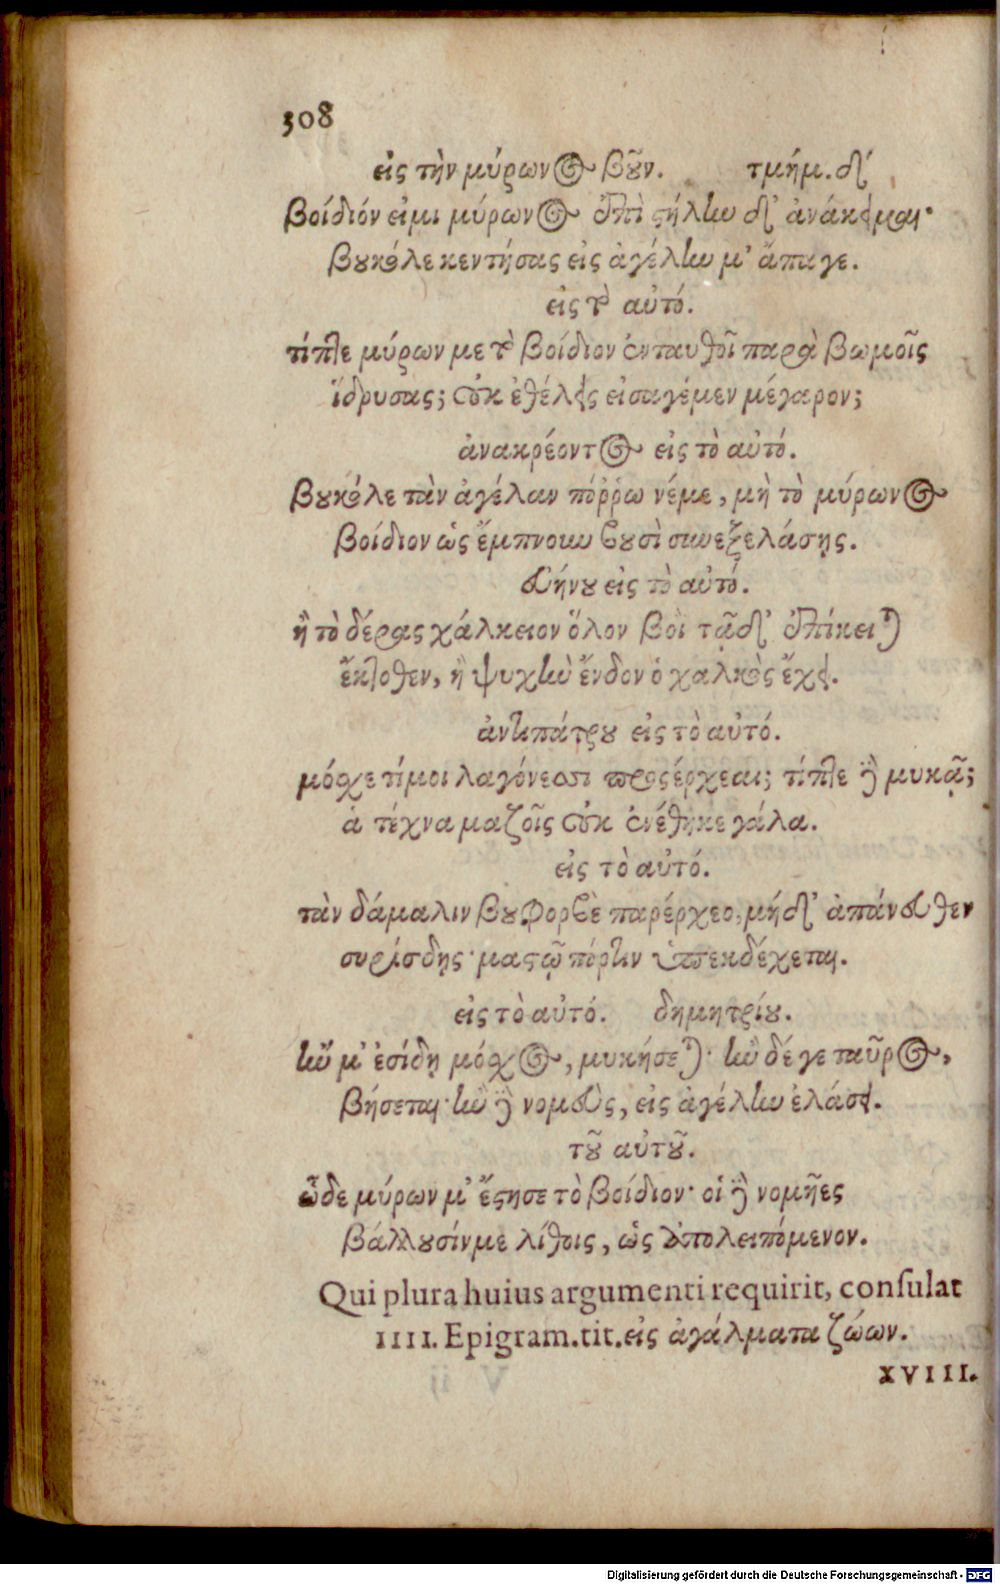 308
εἰς τὴν μύρωνος βοῦν. τμήμ. δ´
βοίδιόν εἰμι μύρωνος, ἐπὶ στήλην δ' ἀνάκειμαι·
βουκόλε κεντήσας εἰς ἀγέλην μ' ἄπαγε.
εἰς τὸ αὐτό.
τίπτε μύρων με τὸ βοίδιον ἐνταυθοῖ παρὰ βωμοῖς
ἵδρυσας; οὐκ ἐθέλεις εἰσαγέμεν μέγαρον;
ἀνακρέοντος εἰς τὸ αὐτό.
βουκόλε τὰν ἀγέλαν πόῤῥω νέμε, μὴ τὸ μύρωνος
βοίδιον ὡς ἔμπνουν βουσὶ συνεξελάσῃς.
εὐήνου εἰς τὸ αὐτό.
ἢ τὸ δέρας χάλκειον ὅλον βοῒ τᾷδ' ἐπίκειται
ἔκτοθεν, ἢ ψυχὴν ἔνδον ὁ χαλκὸς ἔχει.
ἀντιπάτρου εἰς τὸ αὐτό.
μόσχε τί μοι λαγόνεσσι προσέρχεαι; τίπτε δὲ μυκᾷ;
ἁ τέχνα μαζοῖς οὐκ ἐνέθηκε γάλα.
εἰς τὸ αὐτό.
τὰν δάμαλιν βουφορβὲ παρέρχεο, μήδ' ἀπάνευθεν
συρίσδῃς· μαστῷ πόρτιν ὑπεκδέχεται.
εἰς τὸ αὐτό. δημητρίου.
ἤν μ' ἐσίδῃ μόσχος, μυκήσεται· ἢν δέ γε ταῦρος,
βήσεται· ἢν δὲ νομεὺς, εἰς ἀγέλην ἐλάσει.
τοῦ αὐτοῦ.
ὧδε μύρων μ' ἔστησε τὸ βοίδιον· οἱ δὲ νομῆες
βάλλουσίν με λίθοις, ὡς ἀπολειπόμενον.
Qui plura huius argumenti requirit, consulat
IIII. Epigram. tit. εἰς ἀγάλματα ζώων.
XVIII.
Digitalisierung gefördert durch die Deutsche Forschungsgemeinschaft - DFG